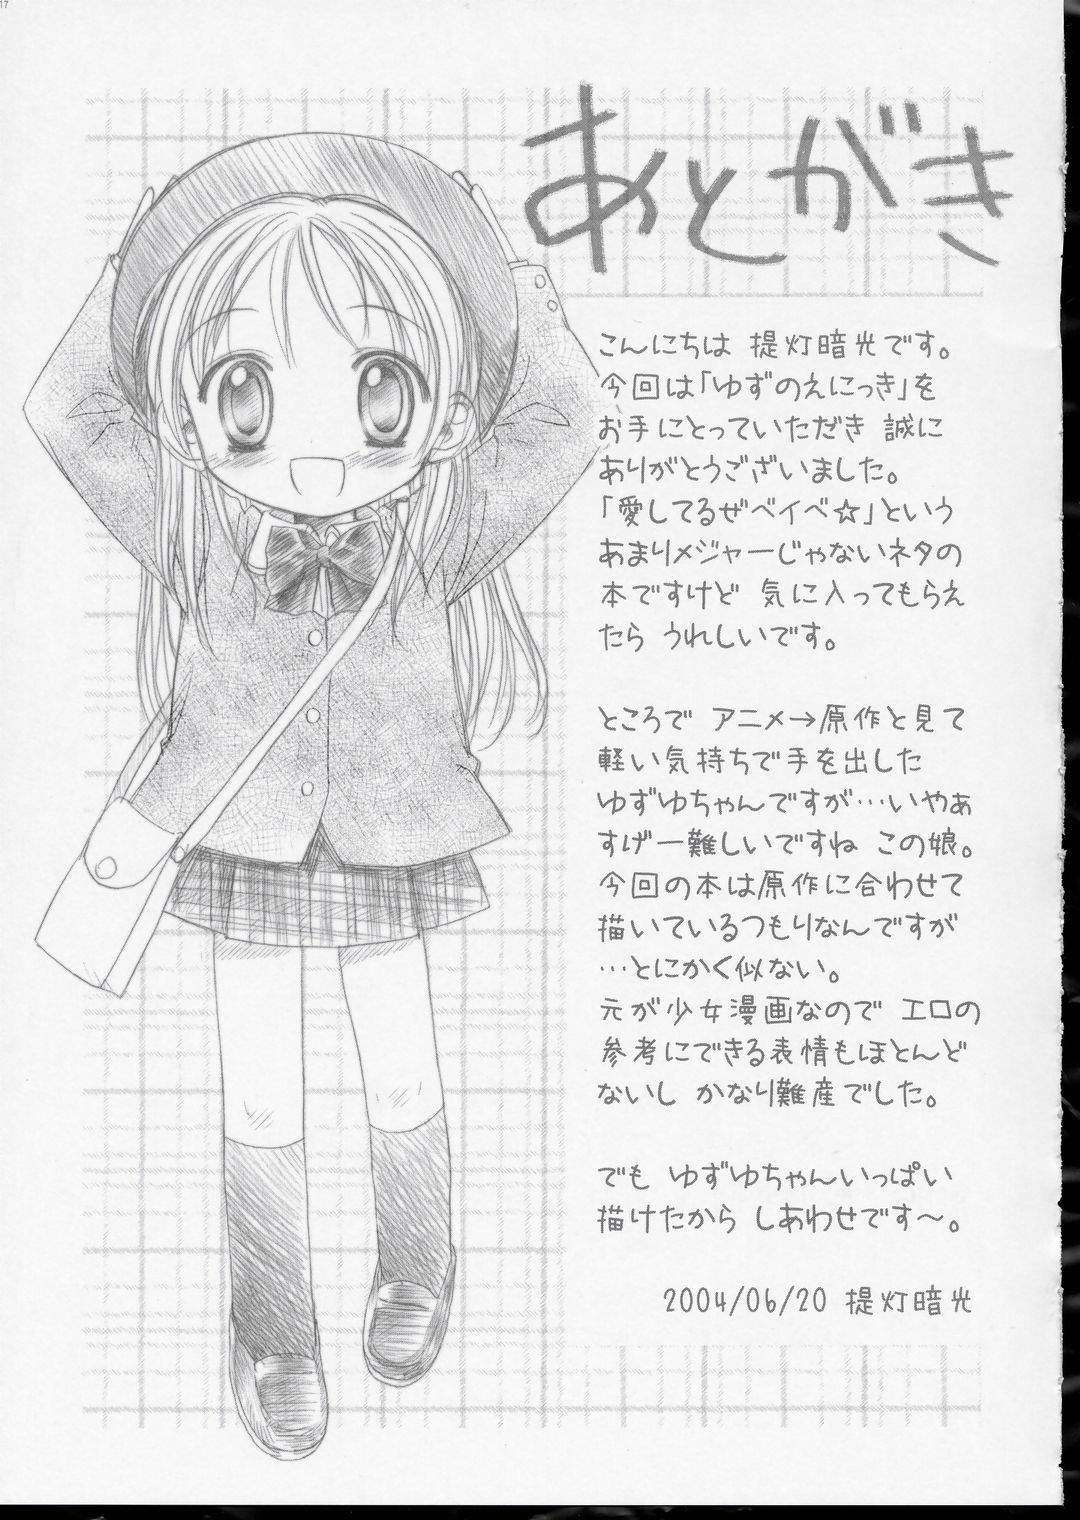 17
あとがき
こんにちは 提灯暗光です。
今回は「ゆずのえにっき」を
お手にとっていただき 誠に
ありがとうございました。
「愛してるぜベイベ☆」という
あまりメジャーじゃないネタの
本ですけど 気に入ってもらえ
たら うれしいです。
ところで アニメ→原作と見て
軽い気持ちで手を出した
ゆずゆちゃんですが…いやぁ
すげー難しいですね この娘。
今回の本は原作に合わせて
描いているつもりなんですが
…とにかく似ない。
元が少女漫画なので エロの
参考にできる表情もほとんど
ないし かなり難産でした。
でも ゆずゆちゃんいっぱい
描けたから しあわせです～。
2004/06/20 提灯暗光